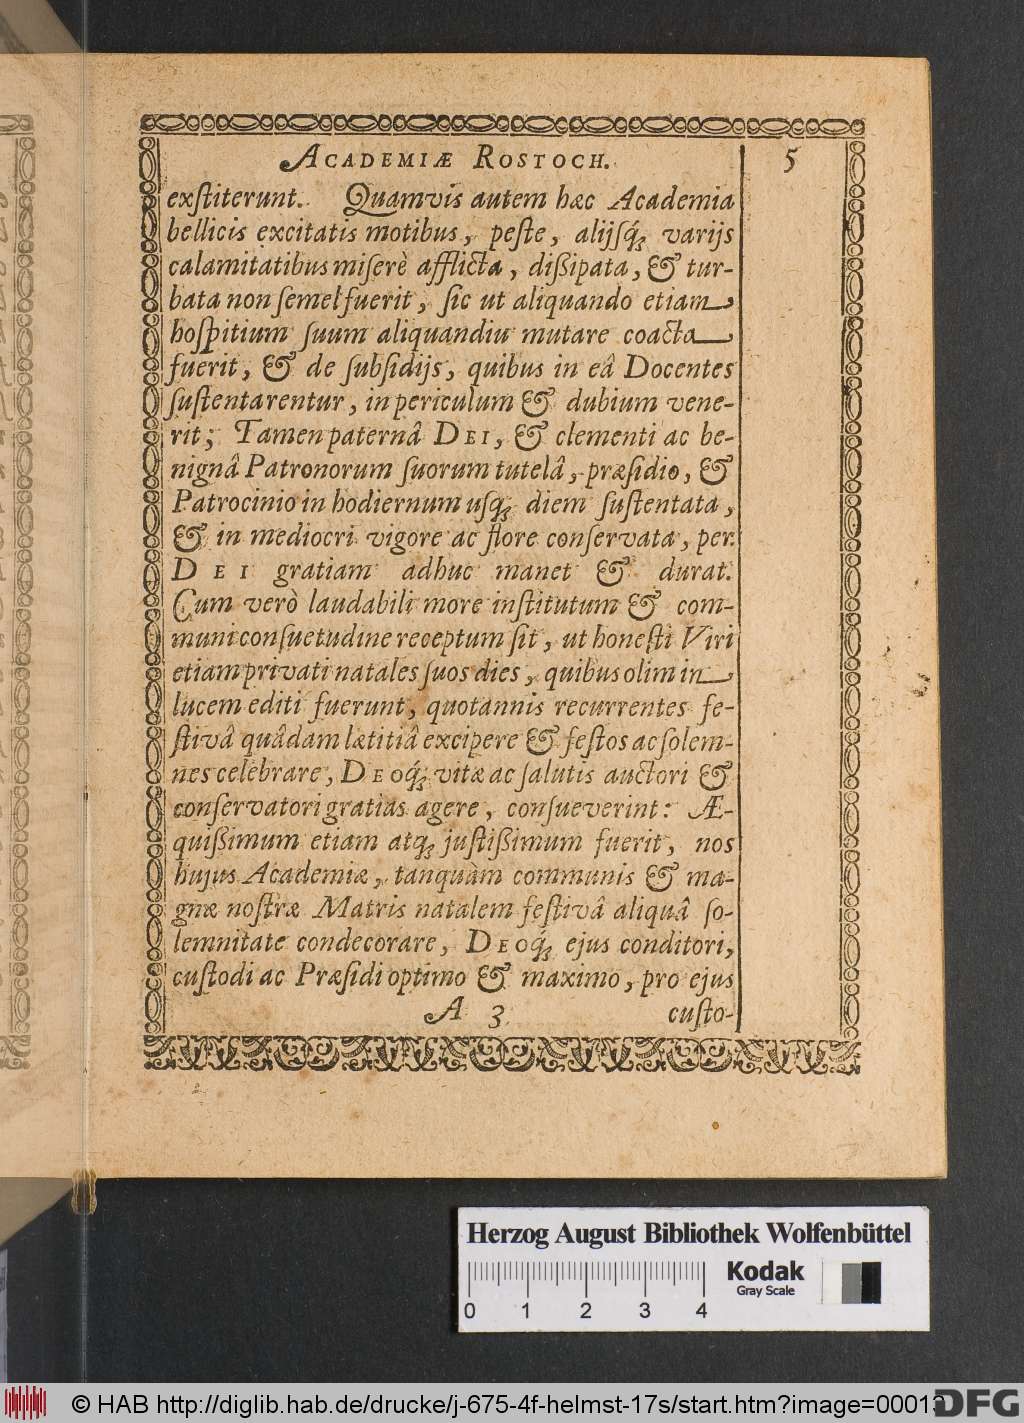 ACADEMIÆ ROSTOCH. 5
exſtiterunt. Quamvis autem hæc Academia
bellicis excitatis motibus, peſte, alijſq́; varijs
calamitatibus miſerè afflicta, dißipata, & tur-
bata non ſemel fuerit, ſic ut aliquando etiam
hoſpitium ſuum aliquandiu mutare coacta
fuerit, & de ſubſidijs, quibus in eâ Docentes
ſuſtentarentur, in periculum & dubium vene-
rit; Tamen paternâ DEI, & clementi ac be-
nignâ Patronorum ſuorum tutelâ, præſidio, &
Patrocinio in hodiernum uſq; diem ſuſtentata,
& in mediocri vigore ac flore conſervata, per
DEI gratiam adhuc manet & durat.
Cum verò laudabili more inſtitutum & com-
muni conſuetudine receptum ſit, ut honeſti Viri
etiam privati natales ſuos dies, quibus olim in
lucem editi fuerunt, quotannis recurrentes fe-
ſtivâ quâdam lætitiâ excipere & feſtos ac ſolem-
nes celebrare, DEOq́; vitæ ac ſalutis auctori &
conſervatori gratias agere, conſueverint: Æ-
quißimum etiam atq; juſtißimum fuerit, nos
hujus Academiæ, tanquàm communis & ma-
gnæ noſtræ Matris natalem feſtivâ aliquâ ſo-
lemnitate condecorare, DEOq́; ejus conditori,
cuſtodi ac Præſidi optimo & maximo, pro ejus
A 3 cuſto-
Herzog August Bibliothek Wolfenbüttel
Kodak
Gray Scale
0 1 2 3 4
© HAB http://diglib.hab.de/drucke/j-675-4f-helmst-17s/start.htm?image=00013
DFG